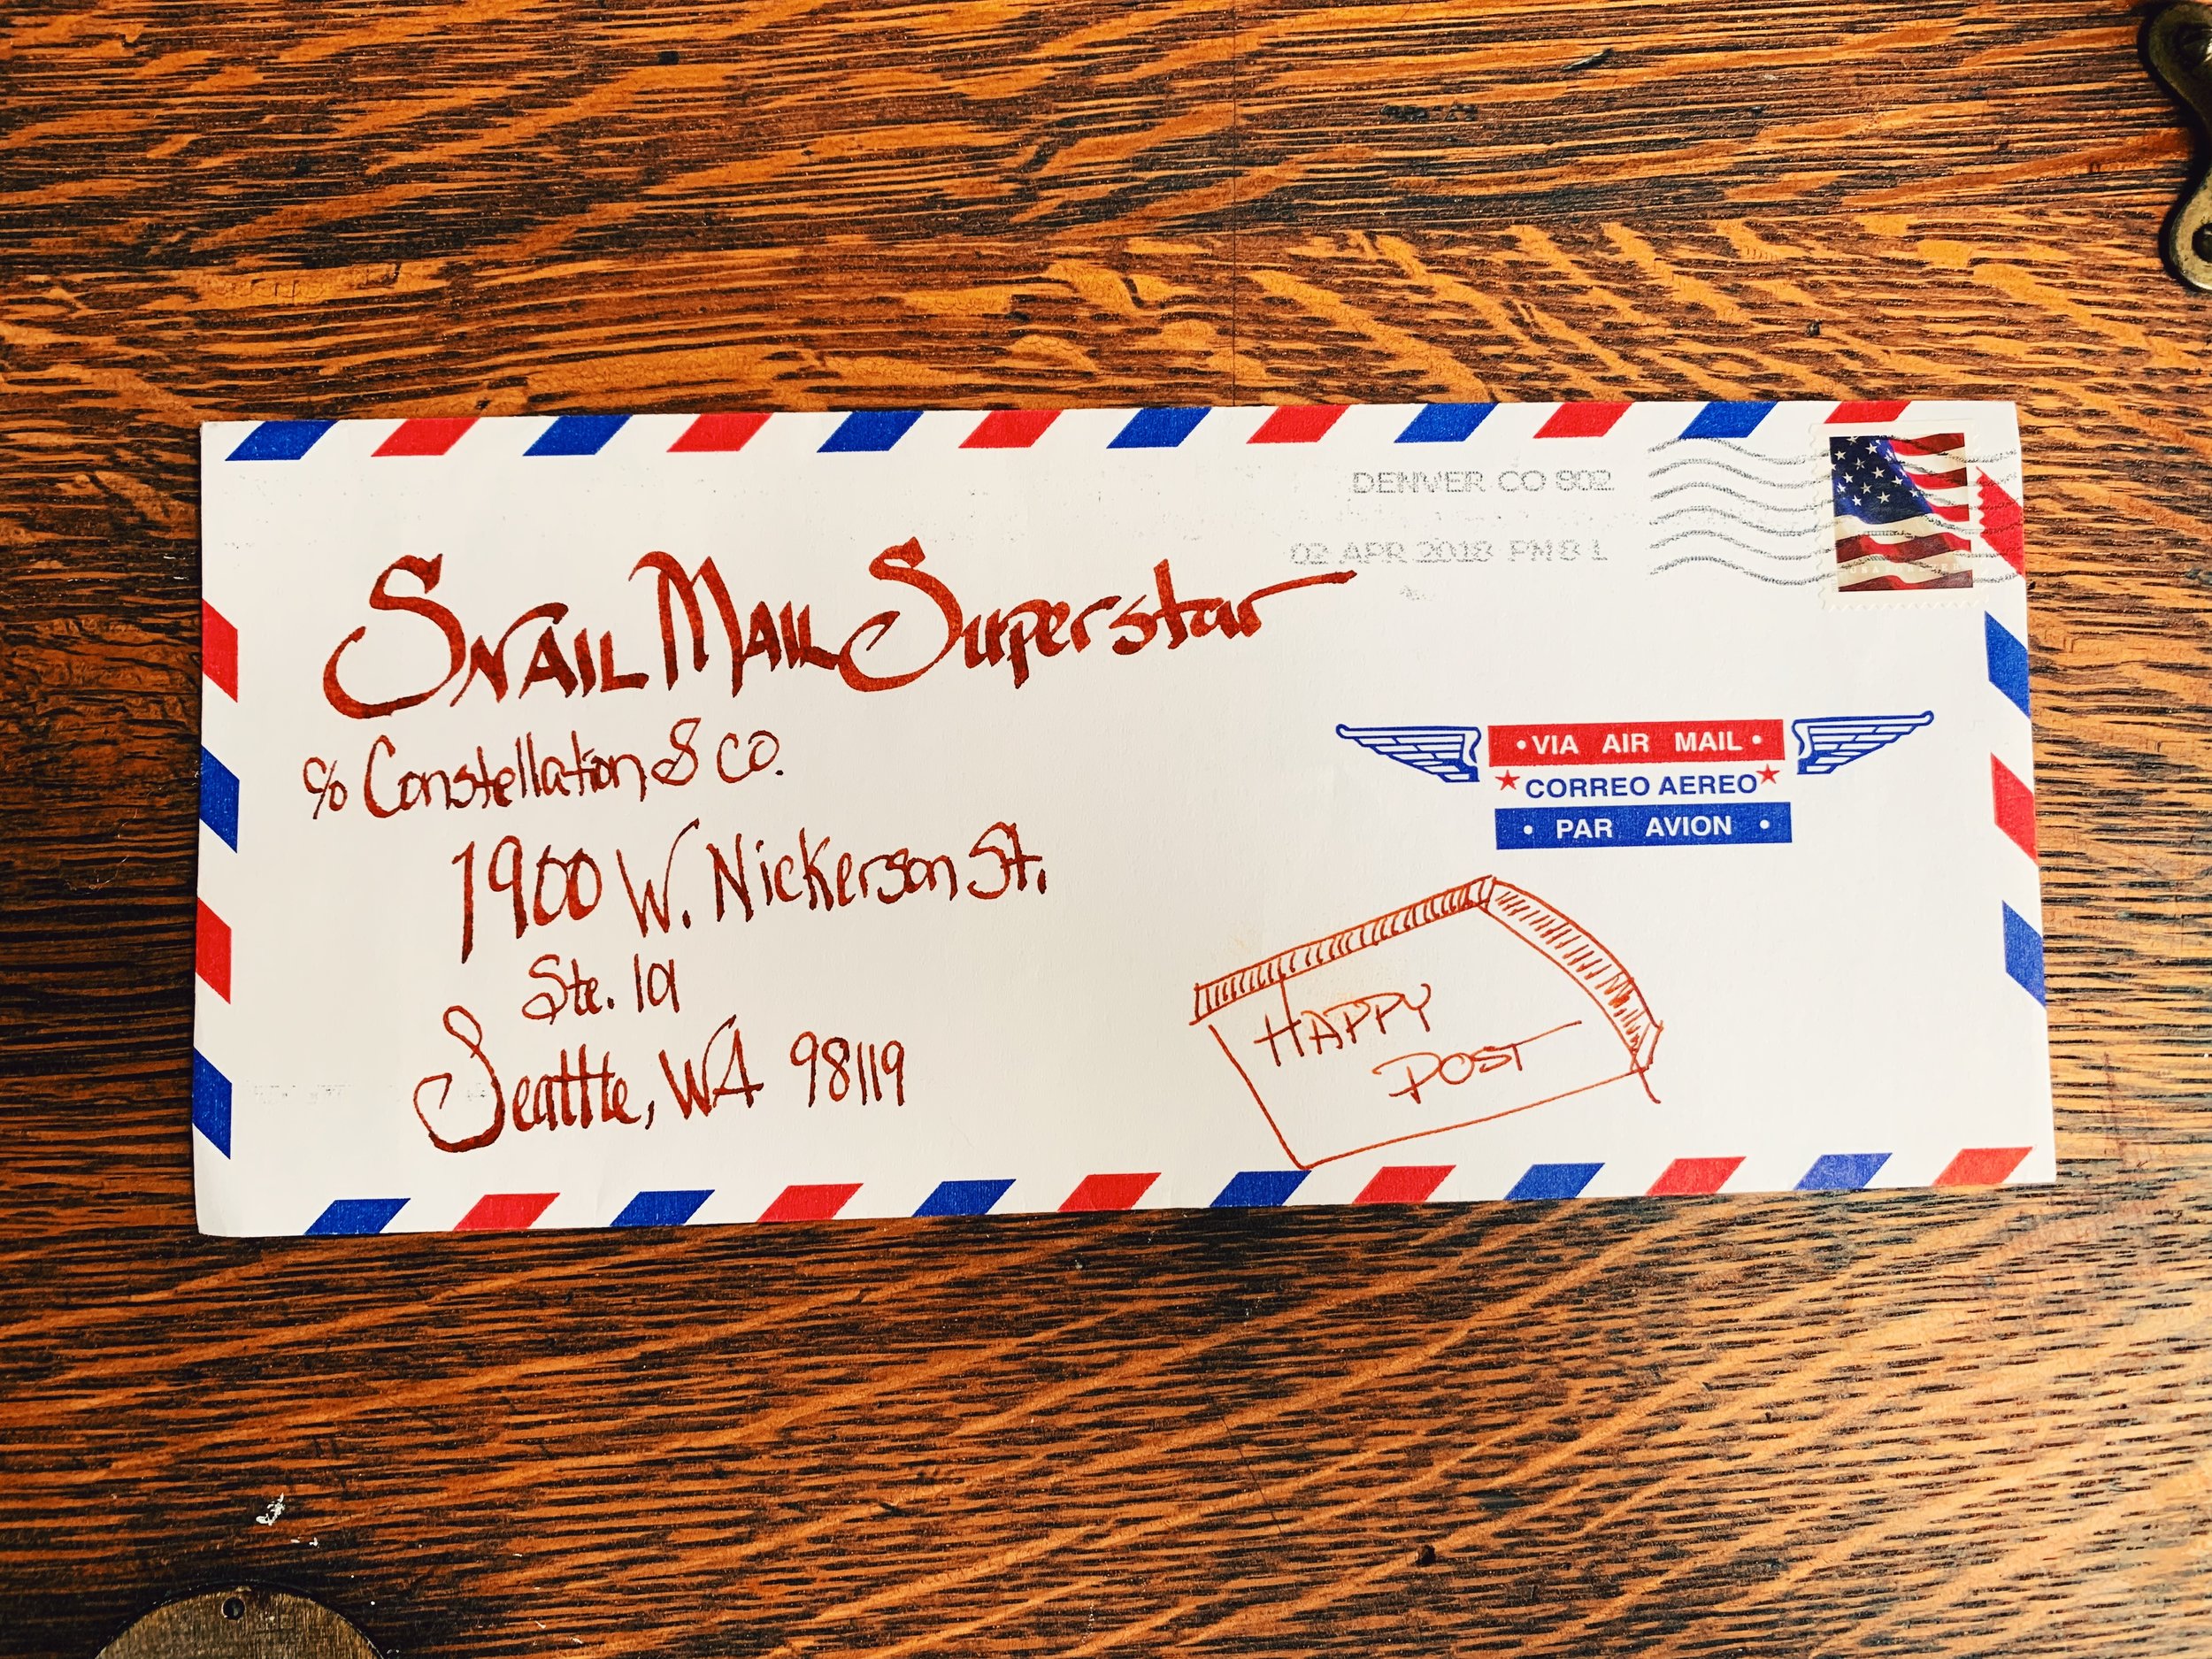 DENVER CO 802
02 APR 2018 PM 8 L
Snail Mail Superstar
c/o Constellation & Co.
1900 W. Nickerson St.
Ste. 101
Seattle, WA 98119
• VIA AIR MAIL •
★ CORREO AEREO ★
• PAR AVION •
HAPPY
POST